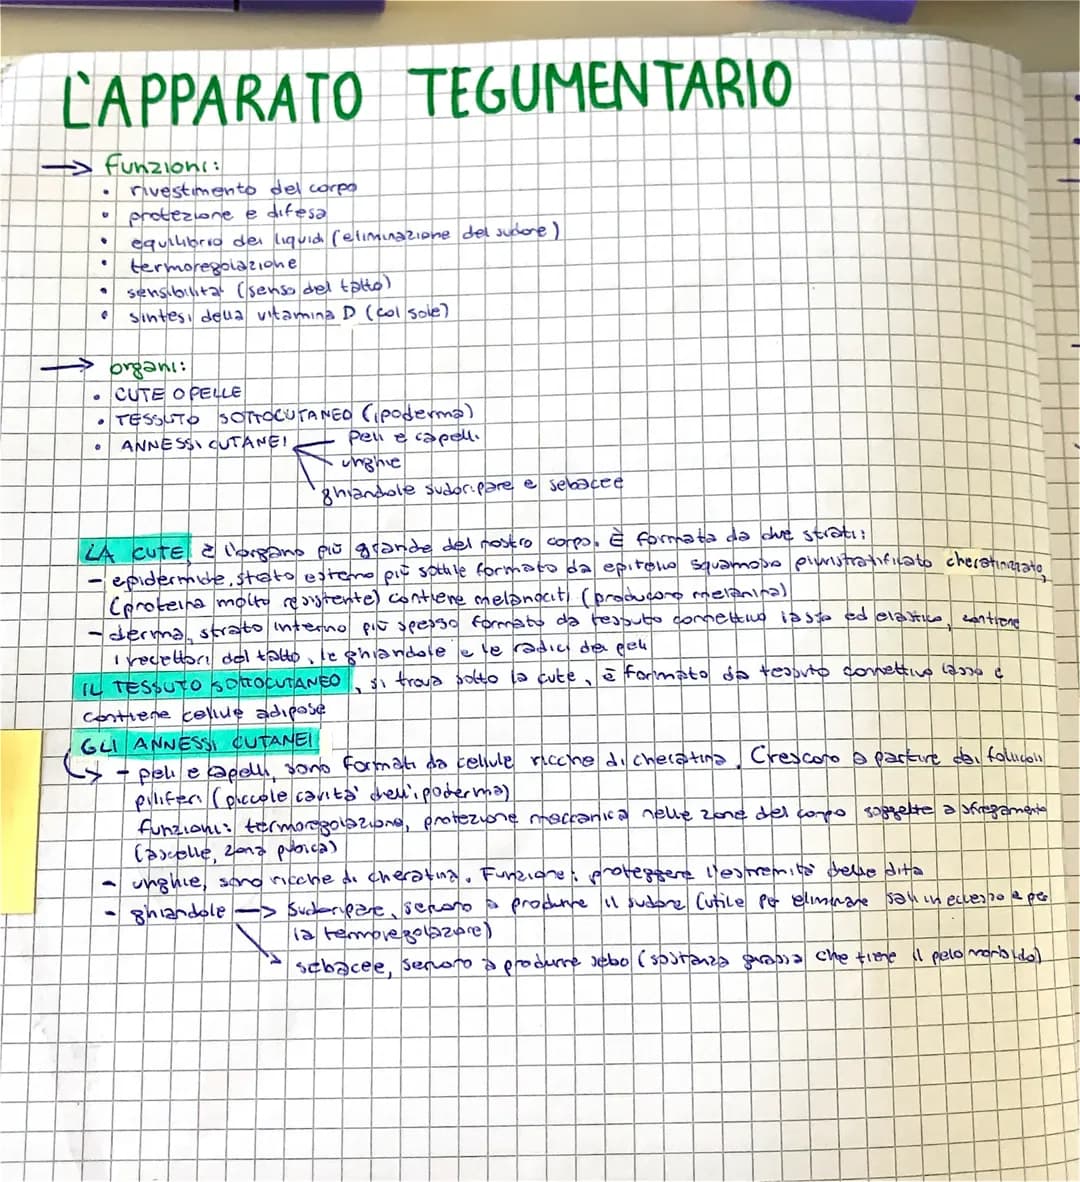 L'APPARATO TEGUMENTARIO
→ funzioni:
• rivestimento del corpo
• protezione e difesa
• equilibrio dei liquidi (eliminazione del sudore)
• termoregolazione
• sensibilità (senso del tatto)
• sintesi della vitamina D (col sole)
→ organi:
• CUTE O PELLE
• TESSUTO SOTTOCUTANEO (ipoderma)
• ANNESSI CUTANEI peli e capelli
unghie
ghiandole sudoripare e sebacee
LA CUTE è l'organo più grande del nostro corpo. È formata da due strati:
- epidermide, strato esterno più sottile formato da epitelio squamoso pluristratificato cheratinizzato
(proteina molto resistente) contiene melanociti (producono melanina)
- derma, strato interno più spesso formato da tessuto connettivo lasso ed elastico, contiene
i recettori del tatto, le ghiandole e le radici dei peli
IL TESSUTO SOTTOCUTANEO, si trova sotto la cute, è formato da tessuto connettivo lasso e
contiene cellule adipose
GLI ANNESSI CUTANEI
↳ - peli e capelli, sono formati da cellule ricche di cheratina. Crescono a partire dai follicoli
piliferi (piccole cavità dell'ipoderma)
funzioni: termoregolazione, protezione meccanica nelle zone del corpo soggette a sfregamento
(ascelle, zona pubica)
- unghie, sono ricche di cheratina. Funzione: proteggere l'estremità delle dita
- ghiandole → sudoripare, servono a produrre il sudore (utile per eliminare sali in eccesso e per
la termoregolazione)
sebacee, servono a produrre sebo (sostanza grassa che tiene il pelo morbido)